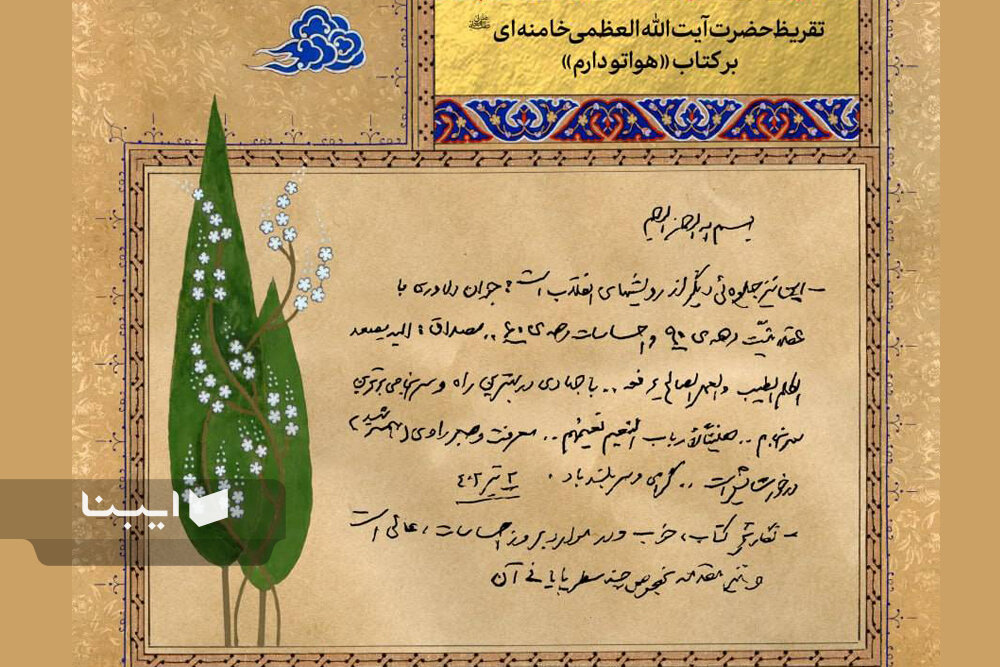 تقریظ حضرت آیت الله العظمی خامنه‌ای
بر کتاب «هواتو دارم»
بسم الله الرحمن الرحیم
- این نیز جلوه‌ئی دیگر از رویشهای انقلاب است: جوان دلاوری با
عقلانیّت دهه‌ی ۹۰ و احساسات دهه‌ی ۶۰ .. مصداق: الیه یصعد
الکلم الطیب و العمل الصالح یرفعه .. با جهادی در بهترین راه و سرانجامی برترین
سرانجام .. هنیئاً لأرباب النعیم نعیمهم .. معرفت و صبر راوی (همسر شهید)
درخور ستایش است .. گرامی و سربلند باد .
۳ تیر ۴۰۲
- نگارش کتاب، خوب و در موارد بروز احساسات، عالی است
و نیز مقدمه بخصوص چند سطر پایانی آن
ایبنا